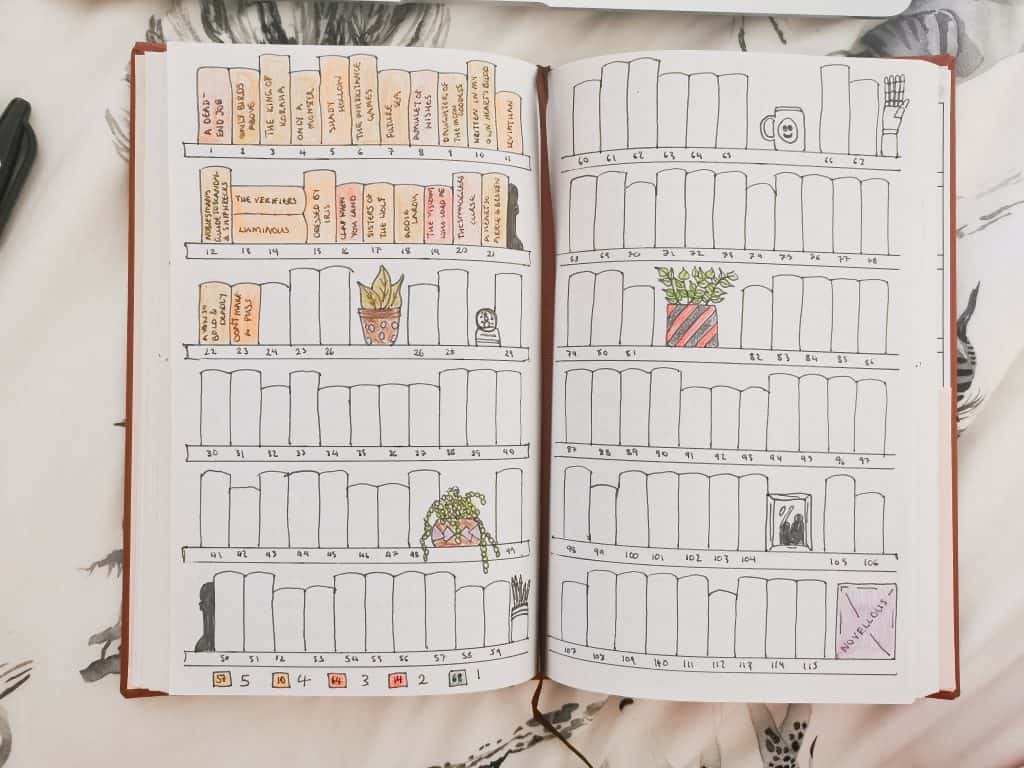 A DEAD-
END JOB
ONLY BIRDS
ABOVE
THE KING OF
KORAHA
ONLY A
MONSTER
SHADY
HOLLOW
THE INHERITANCE
GAMES
FUTURE
SEA
AMULET OF
WISHES
DAUGHTER OF
THE MOON
GODDESS
WRITTEN IN MY
OWN HEART'S BLOOD
LEVIATHAN
1 2 3 4 5 6 7 8 9 10 11
& SHIPWRECKS
THE VERIFIERS
LUMINOUS
CURSED BY
IRIS
CLAP WHEN
YOU LAND
SISTERS OF
THE WOLF
ADDIE
LARUE
THE VISCOUNT
WHO LOVED ME
CURSE
A HEART SO
FIERCE & BROKEN
12 13 14 15 16 17 18 19 20 21
A VOW SO
BOLD &
DEADLY
DON'T MAKE
A FUSS
22 23 24 25 26 26 28 29
30 31 32 33 34 35 36 37 38 39 40
41 42 43 44 45 46 47 48 49
50 51 52 53 54 55 56 57 58 59
57 5 10 4 64 3 14 2 68 1
60 61 62 63 64 65 66 67
68 69 70 71 72 73 74 75 76 77 78
79 80 81 82 83 84 85 86
87 88 89 90 91 92 93 94 95 96 97
98 99 100 101 102 103 104 105 106
107 108 109 110 111 112 113 114 115
NOVELLOUS